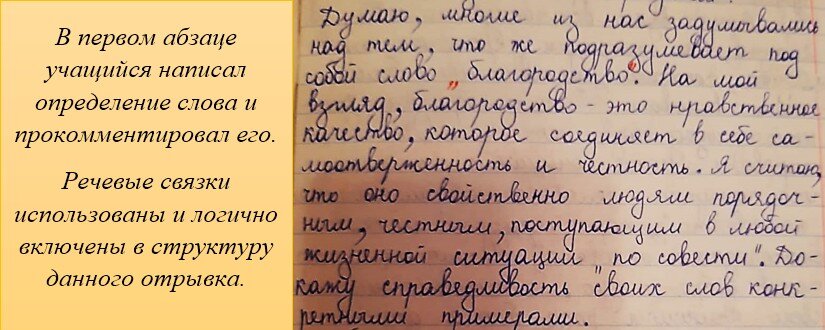 В первом абзаце
учащийся написал
определение слова и
прокомментировал его.
Речевые связки
использованы и логично
включены в структуру
данного отрывка.
Думаю, многие из нас задумывались
над тем, что же подразумевает под
собой слово „благородство". На мой
взгляд, благородство - это нравственное
качество, которое соединяет в себе са-
моотверженность и честность. Я считаю,
что оно свойственно людям порядоч-
ным, честным, поступающим в любой
жизненной ситуации „по совести". До-
кажу справедливость своих слов конк-
ретными примерами.